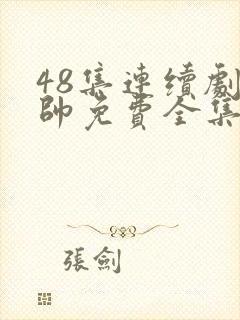 48集連續劇
帥免費全集
張劍